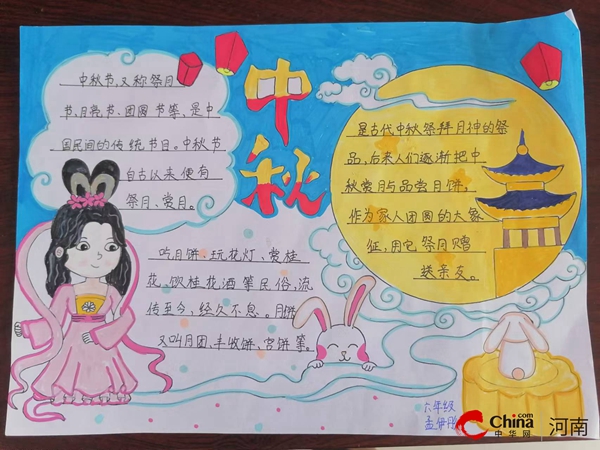 中秋
中秋节,又称祭月
节、月亮节、团圆节等,是中
国民间的传统节日。中秋节
自古以来便有
祭月、赏月。
吃月饼、玩花灯、赏桂
花、饮桂花酒等民俗,流
传至今,经久不息。月饼
又叫月团、丰收饼、宫饼等。
是古代中秋祭拜月神的祭
品,后来人们逐渐把中
秋赏月与品尝月饼,
作为家人团圆的大象
征,用它祭月赠
送亲友。
六年级
China.com
中华网
河南